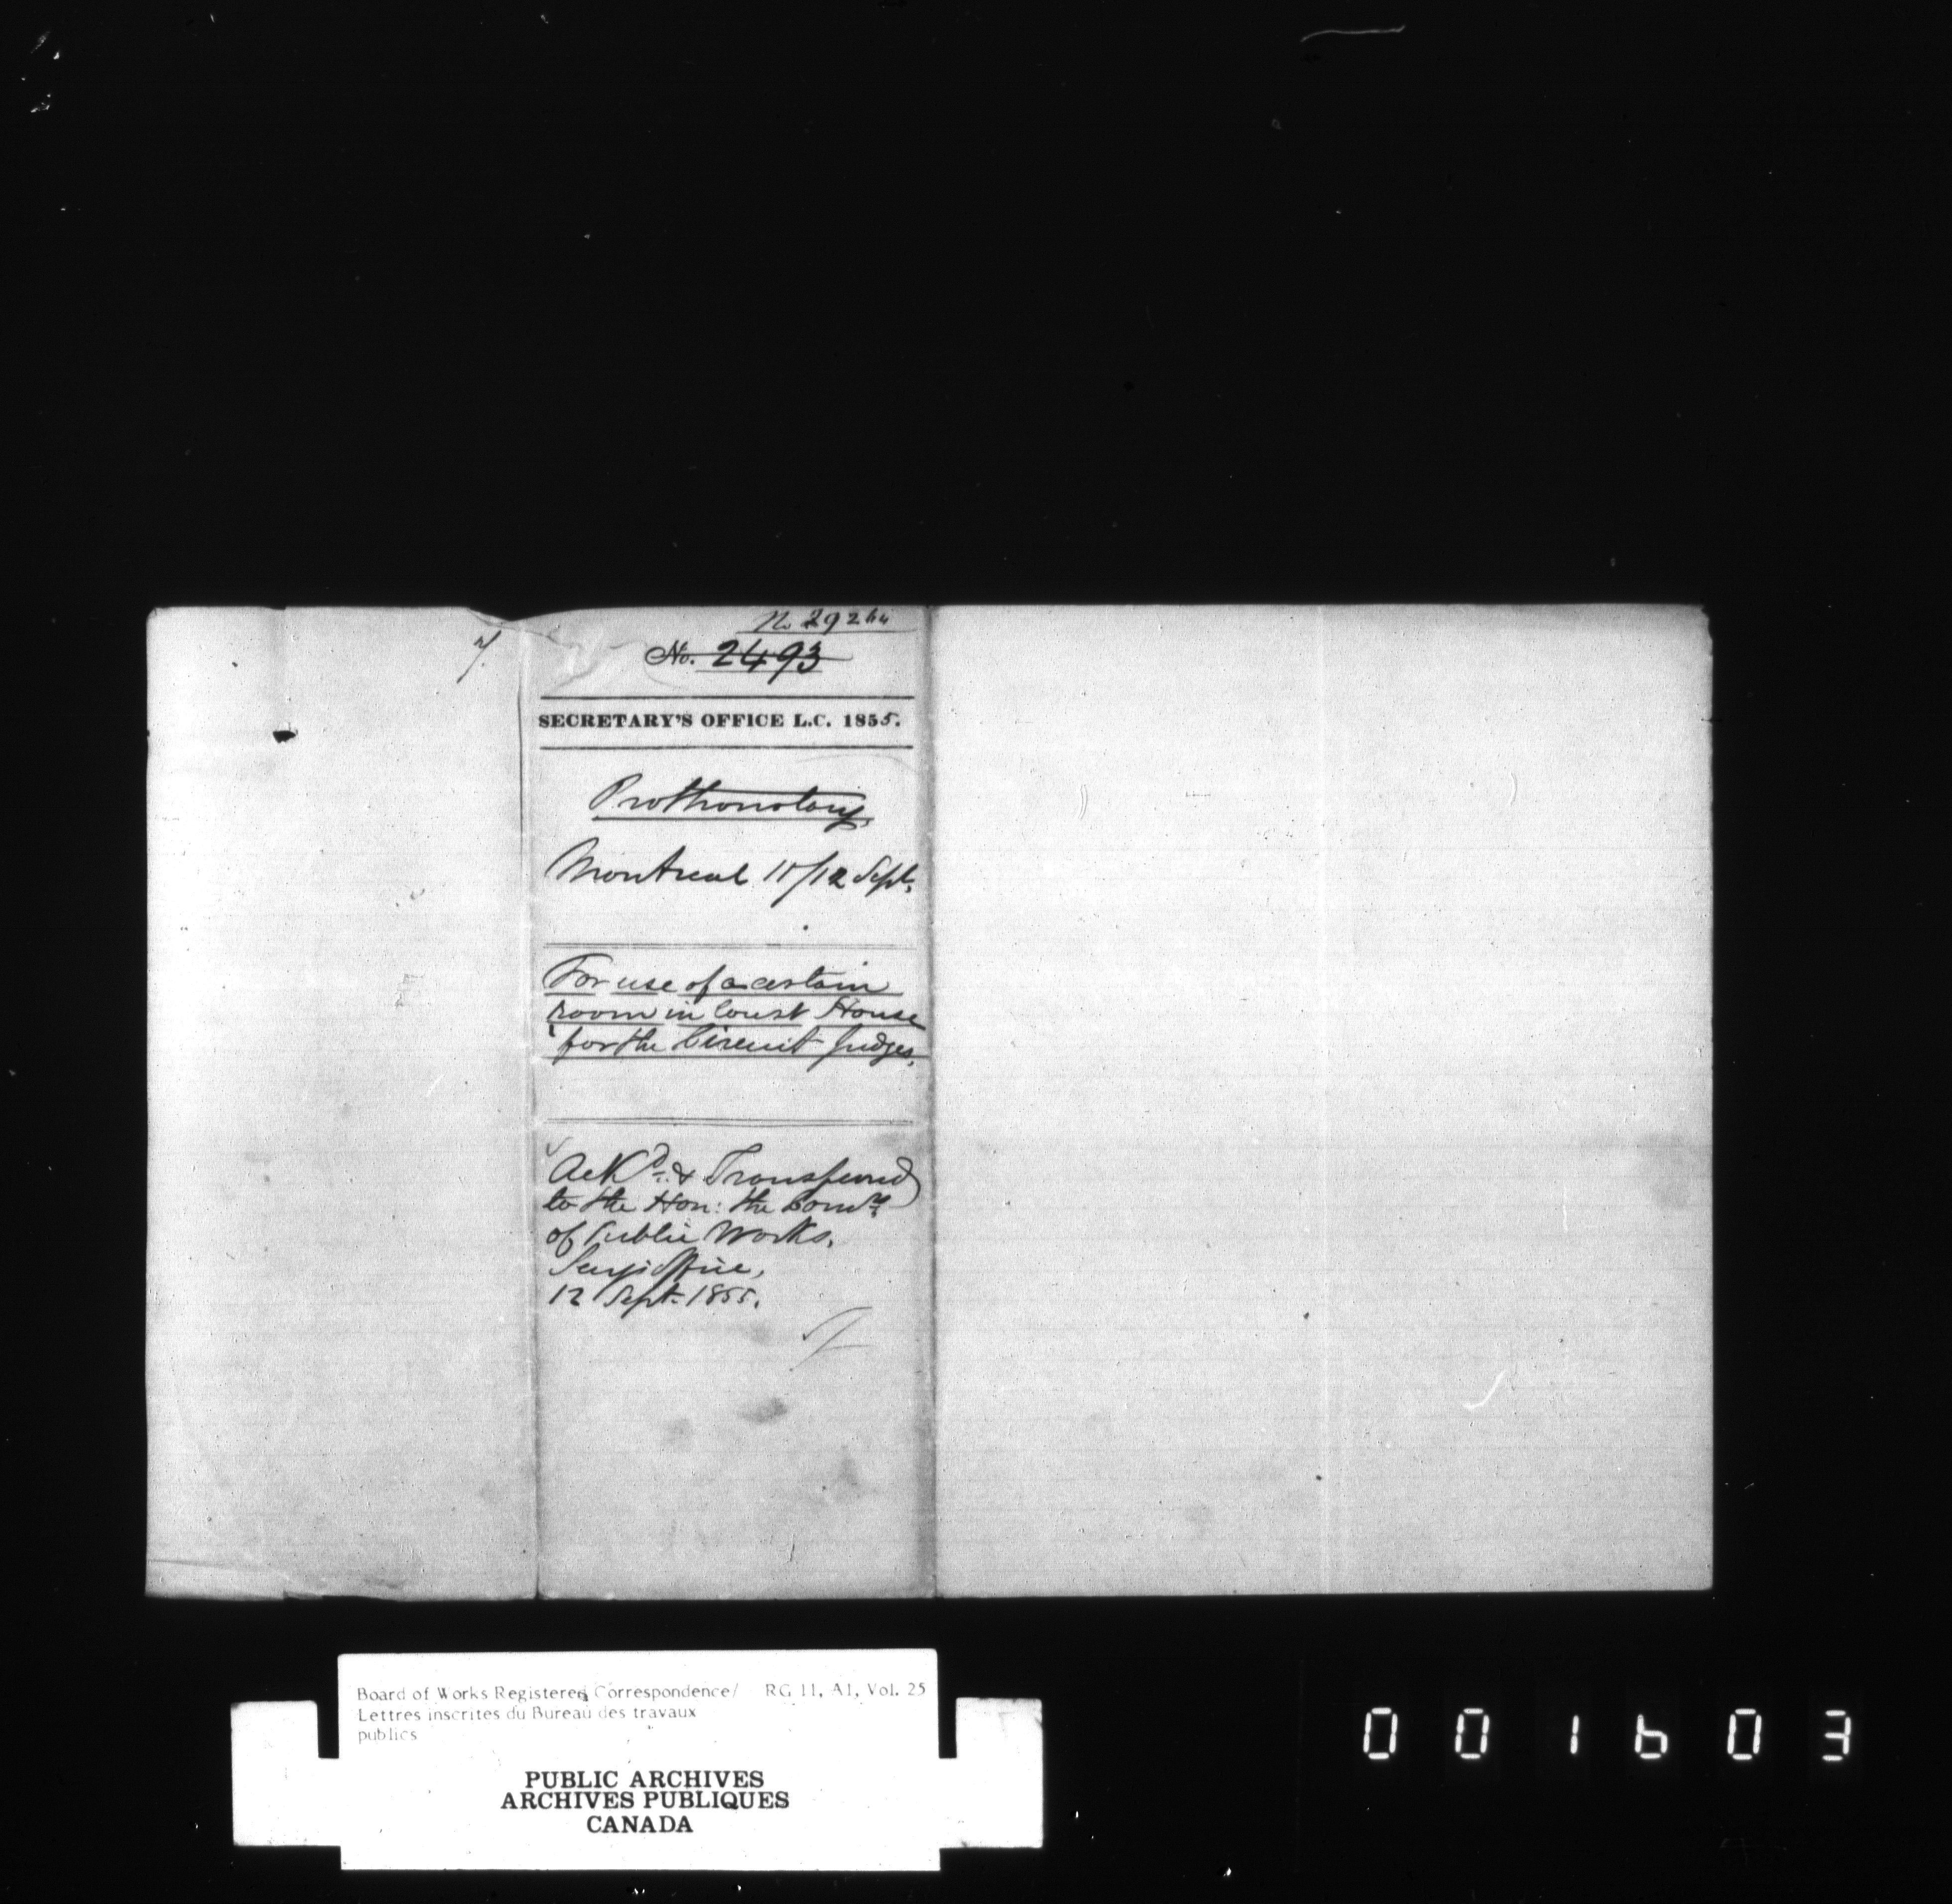 7.
No. 2493
SECRETARY'S OFFICE L.C. 1855.
Prothonotary,
Montreal 11/12 Sept.
For use of a certain
room in Court House
for the Circuit Judges,
Ackd. & Transferred
to the Hon: the Comrs
of Public Works.
Secy's Office,
12 Sept. 1855.
Board of Works Registered Correspondence/ RG 11, A1, Vol. 25
Lettres inscrites du Bureau des travaux
publics
PUBLIC ARCHIVES
ARCHIVES PUBLIQUES
CANADA
001603